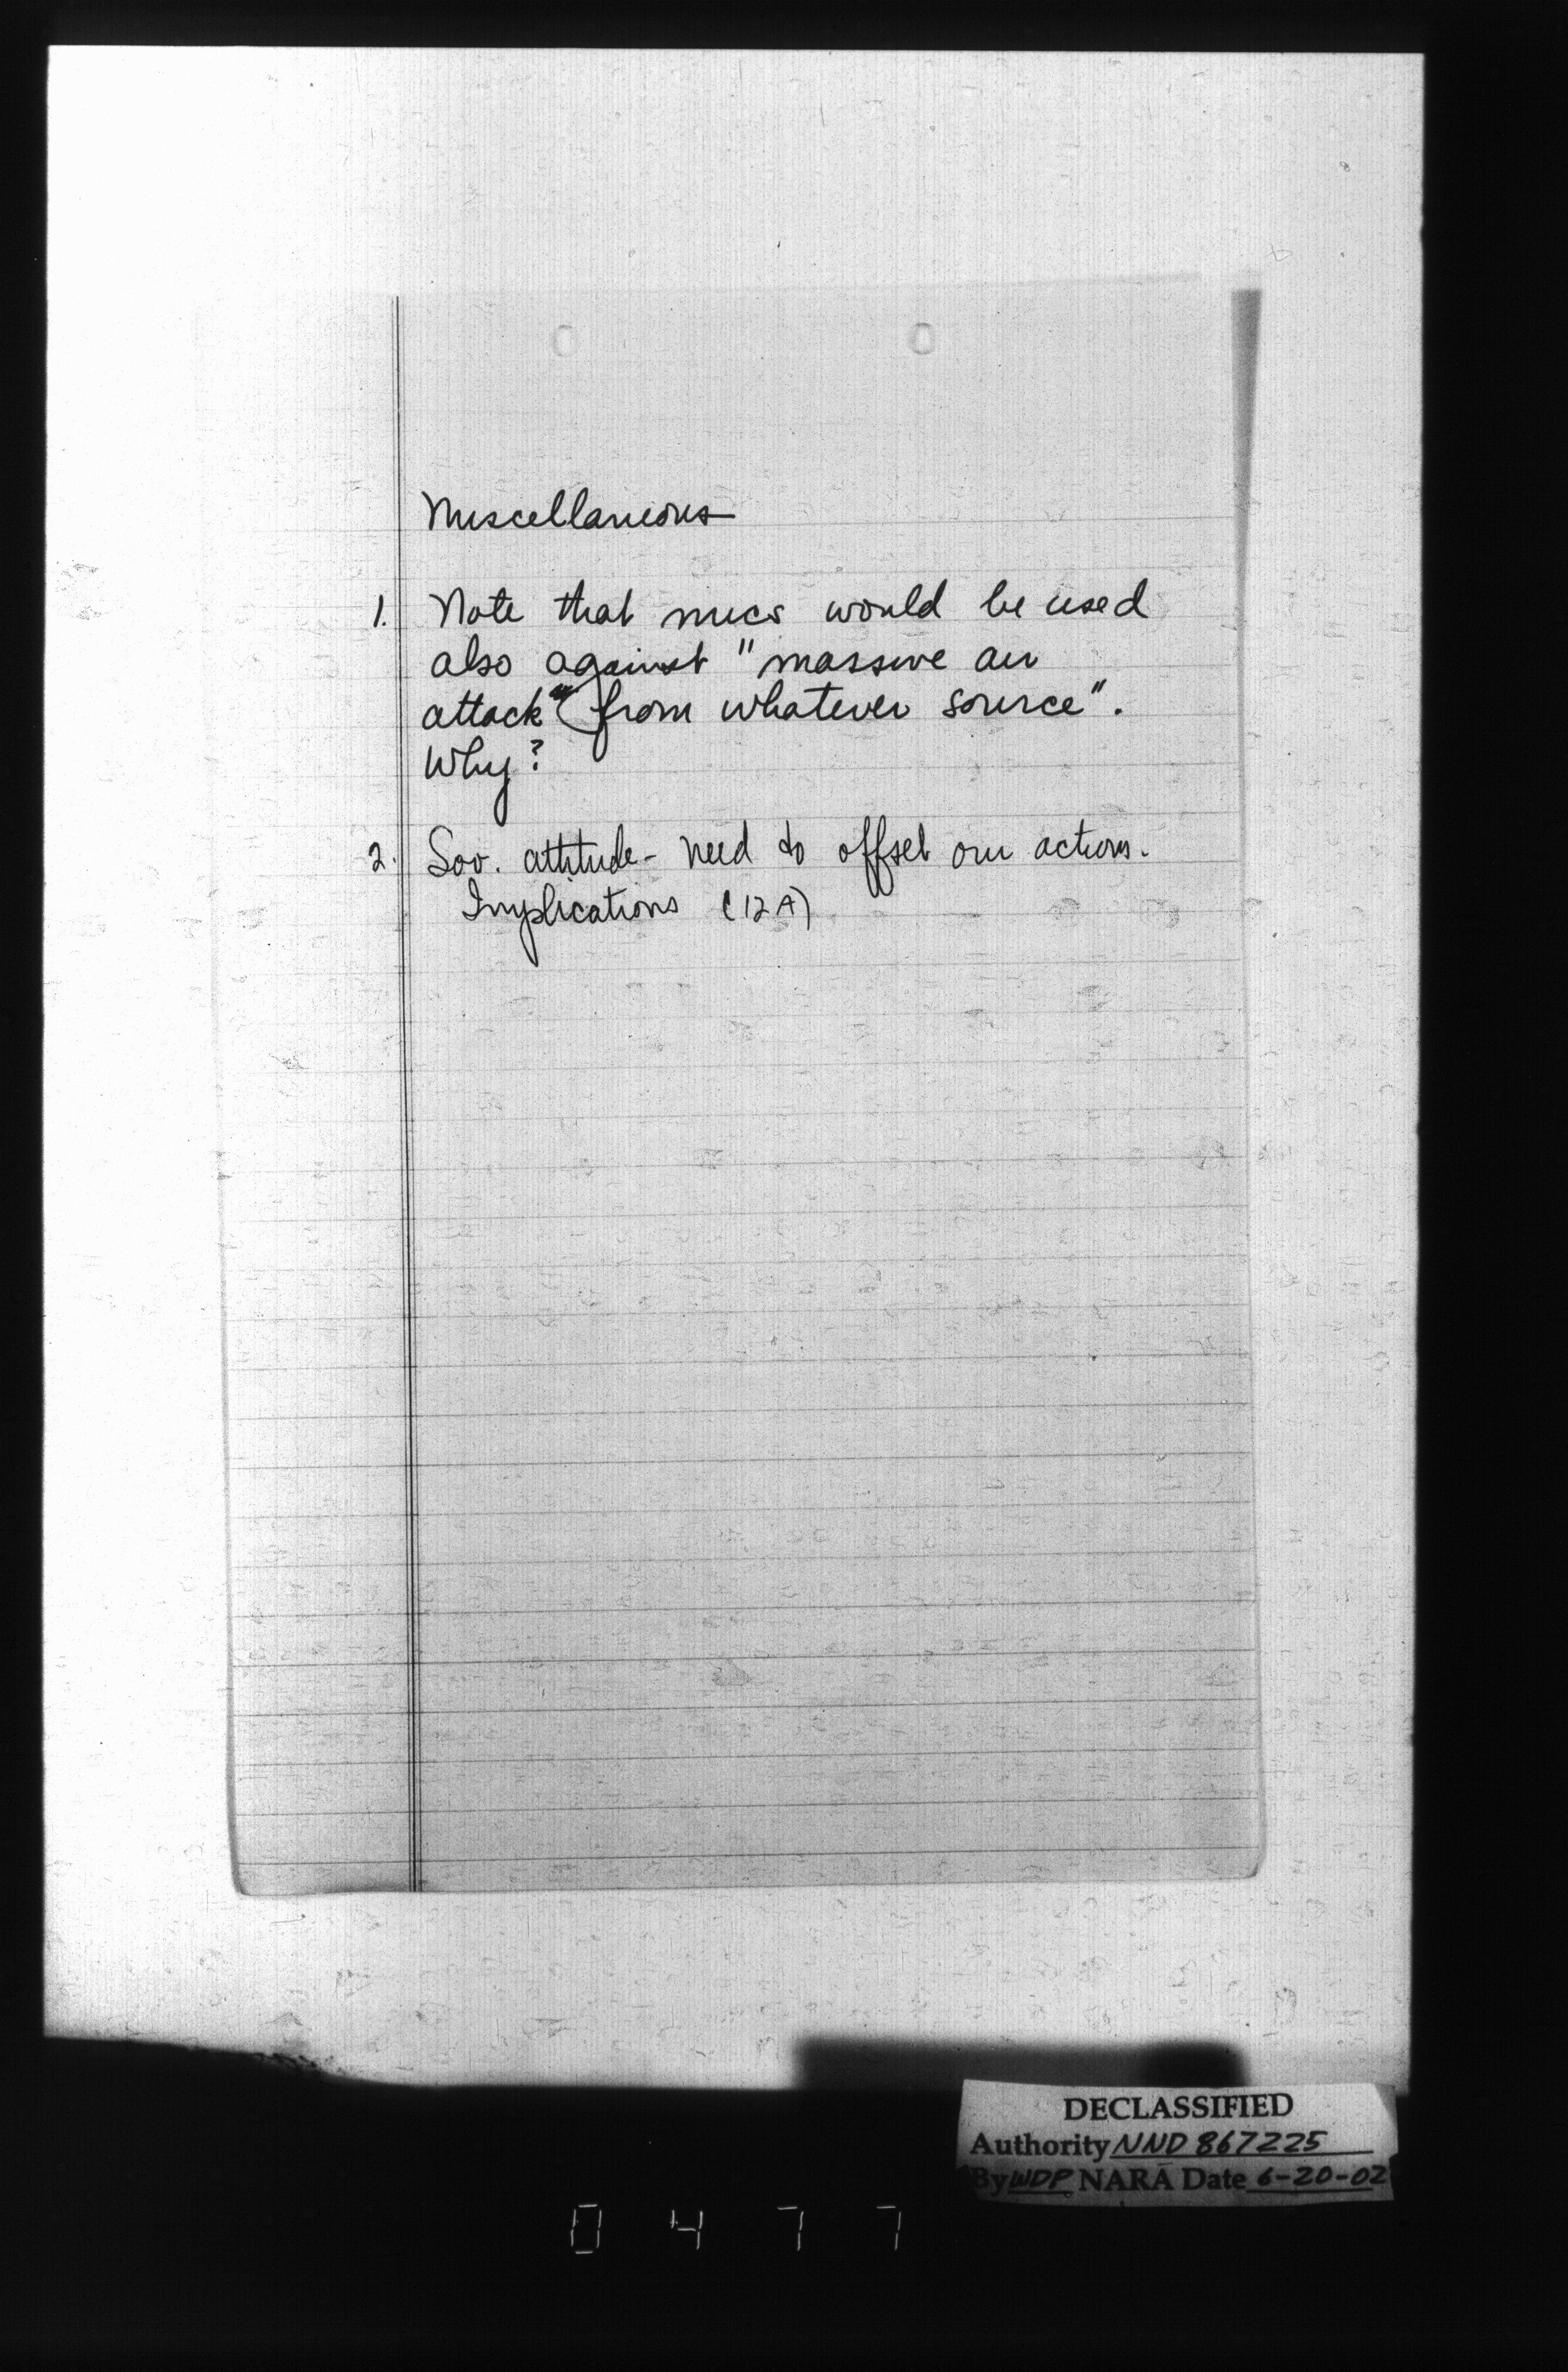 Miscellaneous
1. Note that nucs would be used
also against "massive air
attack" from whatever source".
Why?
2. Sov. attitude - need to offset our actions.
Implications (12A)
DECLASSIFIED
Authority NND 867225
By WDP NARA Date 6-20-02
0477